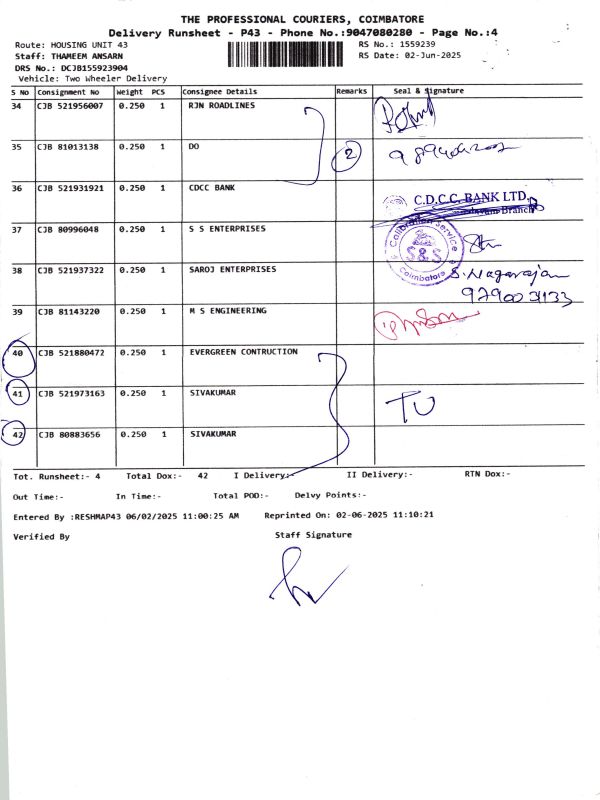 THE PROFESSIONAL COURIERS, COIMBATORE
Delivery Runsheet - P43 - Phone No.:9047080280 - Page No.:4
Route: HOUSING UNIT 43 RS No.: 1559239
Staff: THAMEEM ANSARN RS Date: 02-Jun-2025
DRS No.: DCJB155923904
Vehicle: Two Wheeler Delivery
S No Consignment No Weight PCS Consignee Details Remarks Seal & Signature
34 CJB 521956007 0.250 1 RJN ROADLINES
35 CJB 81013138 0.250 1 DO 2
36 CJB 521931921 0.250 1 CDCC BANK C.D.C.C. BANK LTD.,
Branch
37 CJB 80996048 0.250 1 S S ENTERPRISES Calibration Service S&S Coimbatore
38 CJB 521937322 0.250 1 SAROJ ENTERPRISES S. Nagarajan
39 CJB 81143220 0.250 1 M S ENGINEERING
40 CJB 521880472 0.250 1 EVERGREEN CONTRUCTION
41 CJB 521973163 0.250 1 SIVAKUMAR TU
42 CJB 80883656 0.250 1 SIVAKUMAR
Tot. Runsheet:- 4 Total Dox:- 42 I Delivery:- II Delivery:- RTN Dox:-
Out Time:- In Time:- Total POD:- Delvy Points:-
Entered By :RESHMAP43 06/02/2025 11:00:25 AM Reprinted On: 02-06-2025 11:10:21
Verified By Staff Signature